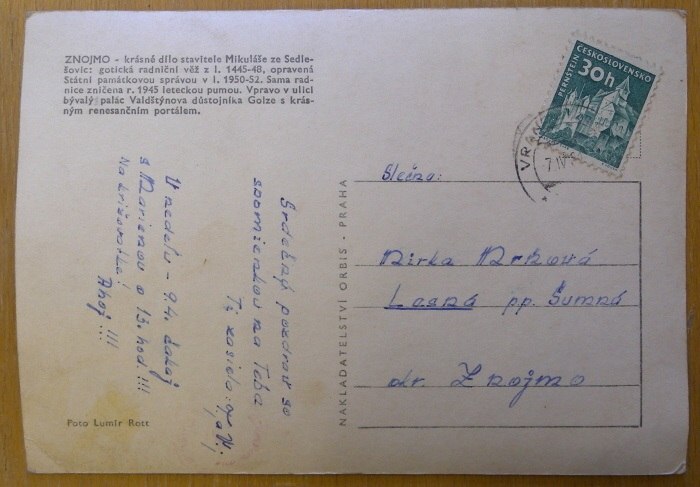 ZNOJMO - krásné dílo stavitele Mikuláše ze Sedle-
šovic: gotická radniční věž z l. 1445-48, opravená
Státní památkovou správou v l. 1950-52. Sama rad-
nice zničena r. 1945 leteckou pumou. Vpravo v ulici
bývalý palác Valdštýnova důstojníka Golze s krás-
ným renesančním portálem.
Srdečný pozdrav so
spomienkou na Teba
Ti zasiela:
V nedeľu - 9.4. čakaj
s Marienou o 13. hod. !!!
Na križovatke!
Ahoj !!!
Foto Lumír Rott
NAKLADATELSTVÍ ORBIS - PRAHA
ČESKOSLOVENSKO
PERNŠTEJN
30h
VRAN
7.IV
Slečna:
Mirka Mrková
Lesná pp. Šumná
okr. Znojmo